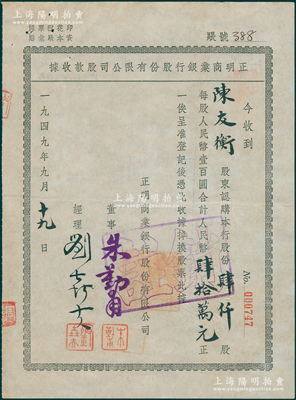 上海陽明拍賣有限公司
賬號 388
正明商業銀行股份有限公司股款收據
今收到
陳友衡 股東認購本行股份肆仟股
每股人民幣壹百圓合計人民幣肆拾萬元正
一俟呈准登記後憑此收據掉換股票此據
正明商業銀行股份有限公司
董事 朱勤甫
經理 劉
一九四九年九月十九日
No. 000747
上海陽明拍賣有限公司